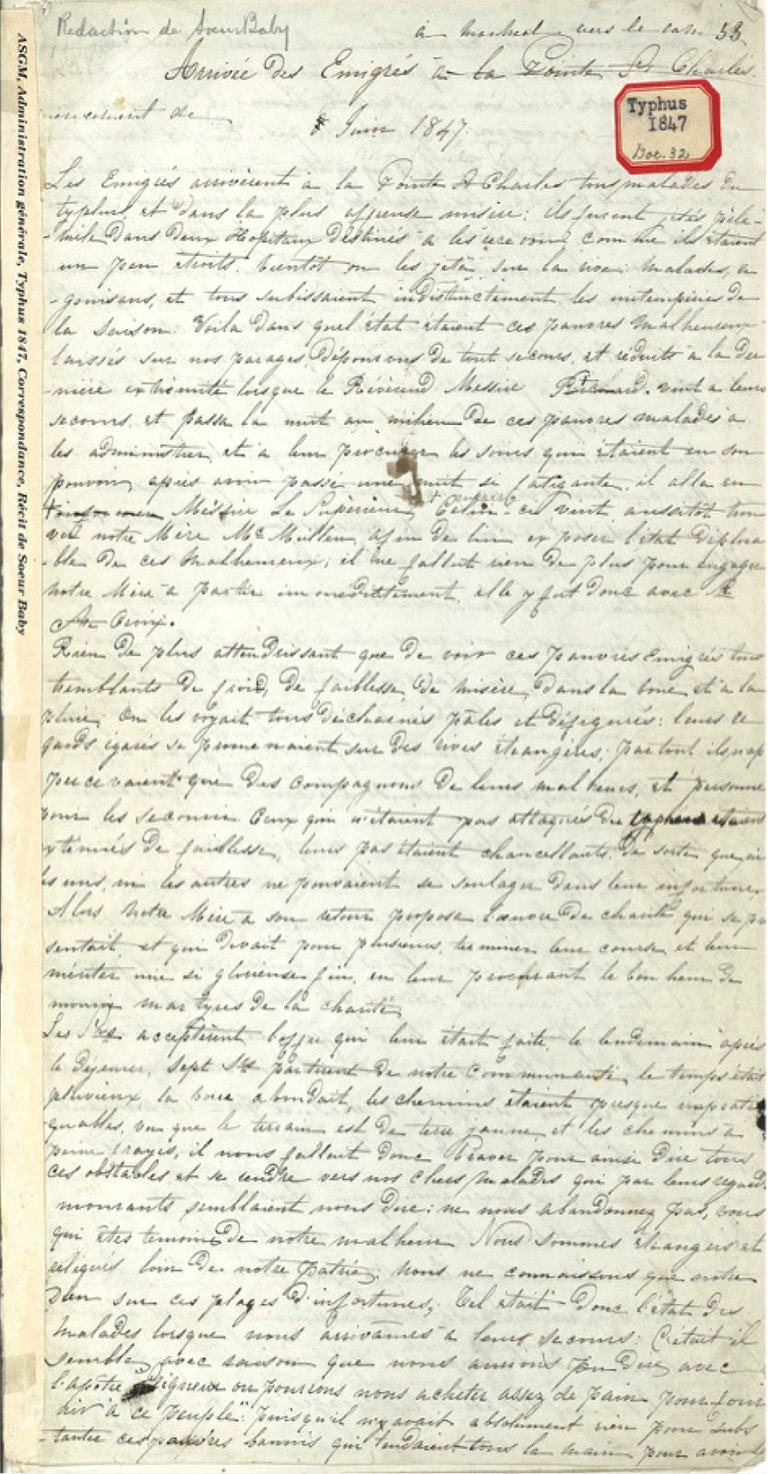 Redaction de Soeur Baby
à Montreal vers le 53
Arrivée des Emigrés à la Pointe St Charles.
8 Juin 1847.
Typhus
1847
Doc. 32
ASGM, Administration générale, Typhus 1847, Correspondance, Récit de Soeur Baby
Les Emigrés arrivèrent à la Pointe St Charles tous malades du
typhus, et dans la plus affreuse misère: ils furent jetés pêle-
-mêle dans deux Hopitaux destinés à les recevoir comme ils étaient
un peu étroits. bientôt on les jeta sur la rive: malades, a
-gonisans, et tous subissaient indistinctement les intempéries de
la saison. Voila dans quel état étaient ces pauvres malheureux
laissés sur nos parages dépourvus de tout secours, et réduits à la der
-nière extrémité lorsque le Révérend Messire Richard. vint a leurs
secours, et passa la nuit au milieu de ces pauvres malades à
les administrer, et à leur procurer les soins qui étaient en son
pouvoir, après avoir passé une nuit si fatigante, il alla en
informer Messire Le Supérieur, Celui-ci vint aussitôt trou
ver notre Mère Mc Mullen, afin de lui exposer l'état déplora
-ble de ces malheureux; il ne fallut rien de plus pour engager
notre Mère à partir immédiatement, elle y fut donc avec Sr
Ste Croix.
Rien de plus attendrissant que de voir ces pauvres Emigrés tous
tremblants de froid, de faiblesse, de misère, dans la boue et à la
pluie; on les voyait tous décharnés pâles et défigurés: leurs re
gards égarés se promenaient sur des rives étrangères; partout ils n'ap
percevaient que des compagnons de leurs malheurs, et personne
pour les secourir. Ceux qui n'étaient pas attaqués du typhus étaient
exténués de faiblesse, leurs pas étaient chancellants, de sorte que ni
les uns, ni les autres ne pouvaient se soulager dans leur infortune.
Alors Notre Mère à son retour proposa l'oeuvre de charité qui se pré
sentait, et qui devait pour plusieurs, terminer leur course, et leur
mériter une si glorieuse fin, en leur procurant le bonheur de
mourir martyres de la charité
Les Srs acceptèrent l'offre qui leur était faite, le lendemain après
le déjeuner, Sept Srs partirent de notre Communauté, le temps était
pluvieux la boue abondait, les chemins étaient presque imprati
quables, vu que le terrain est de terre jaune, et les chemins à
peine frayés, il nous fallut donc braver pour ainsi dire tous
ces obstacles et se rendre vers nos chers malades qui par leurs regards
mourants semblaient nous dire: ne nous abandonnez pas, vous
qui êtes temoins de notre malheur Nous sommes étrangers et
relégués loin de notre patrie; nous ne connaissons que notre
Dieu sur ces plages d'infortunes, Tel était donc l'état des
malades lorsque nous arrivâmes à leurs secours: C'était il
semble, avec raison que nous aurions pu dire avec
l'apôtre Seigneur ou pourrons nous acheter assez de pain pour four
nir à ce peuple": puisqu'il n'y avait absolument rien pour subs
-tanter ces pauvres bannis qui tendaient tous la main pour avoir